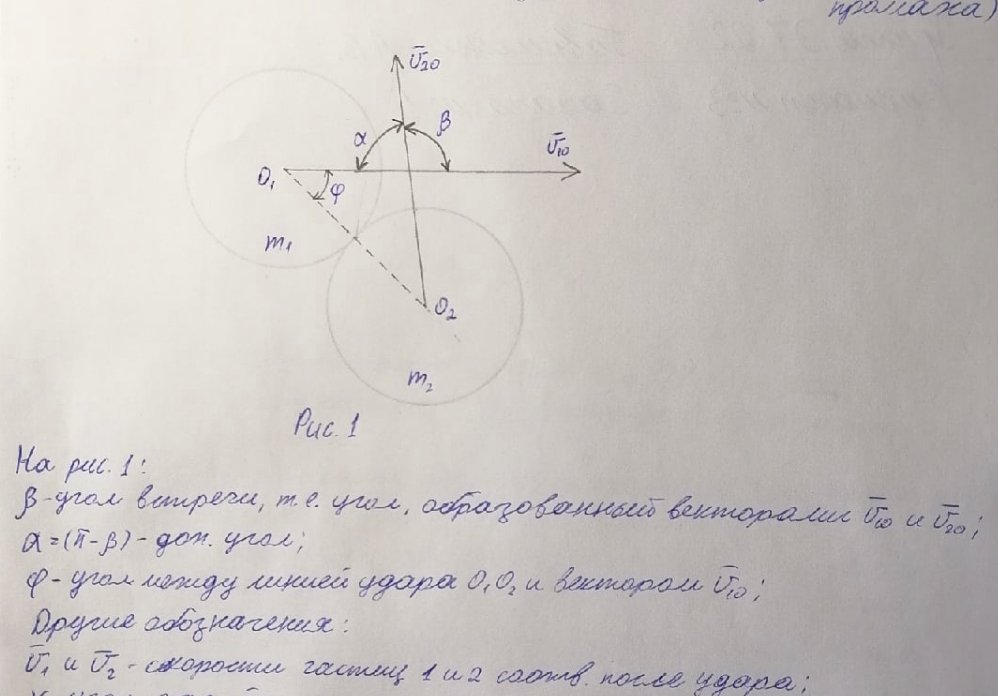 промаха)
Ū₂₀
α
β
Ū₁₀
O₁
φ
m₁
O₂
m₂
Рис. 1
На рис. 1:
β-угол встречи, т.е. угол, образованный векторами Ū₁₀ и Ū₂₀;
α=(π-β)-доп. угол;
φ-угол между линией удара O₁O₂ и вектором Ū₁₀;
Другие обозначения:
Ū₁ и Ū₂-скорости частиц 1 и 2 соотв. после удара;